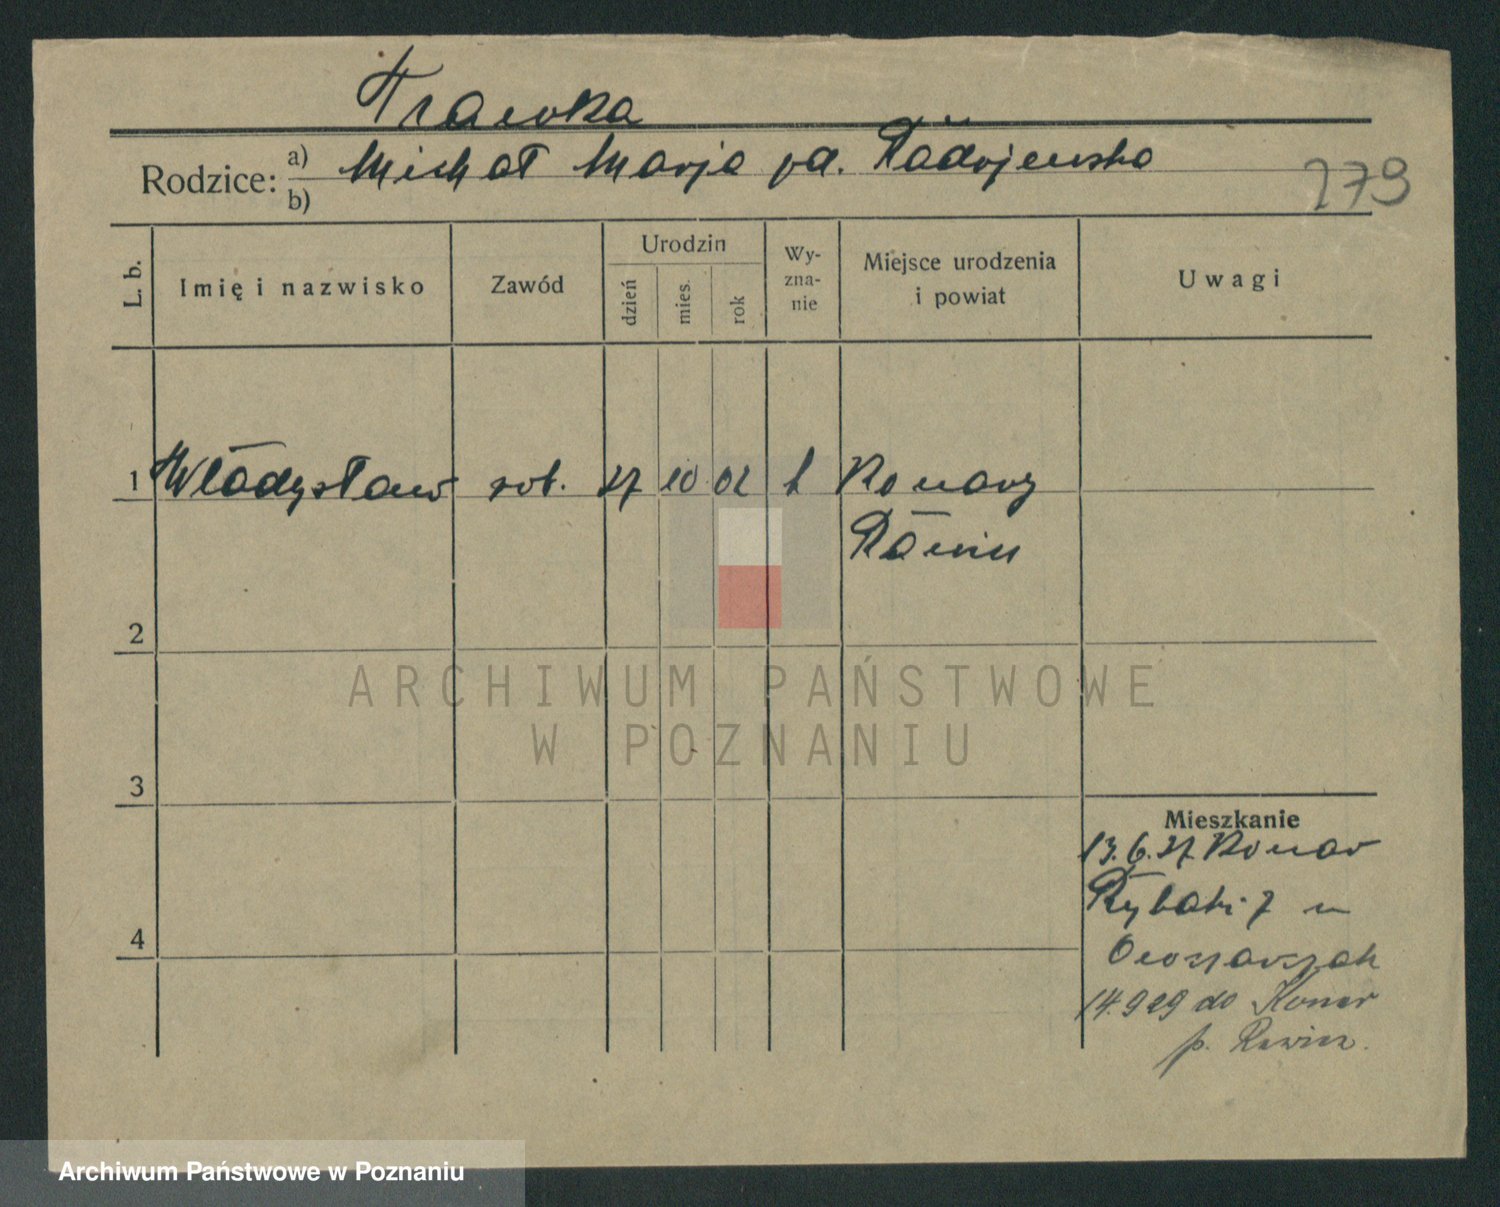 Trawka
Rodzice: a) Michał Marja zd. Radojewska
b)
179
L. b.
Imię i nazwisko
Zawód
Urodzin
dzień
mies.
rok
Wy-
zna-
nie
Miejsce urodzenia
i powiat
Uwagi
1 Władysław rob. 27 10 02 k Konary
Rawicz
2
ARCHIWUM PAŃSTWOWE
W POZNANIU
3
Mieszkanie
13.6.27 Konar
Rybaki 7 u
4
Owczarzak
14.9 29 do Konar
p. Rawicz.
Archiwum Państwowe w Poznaniu